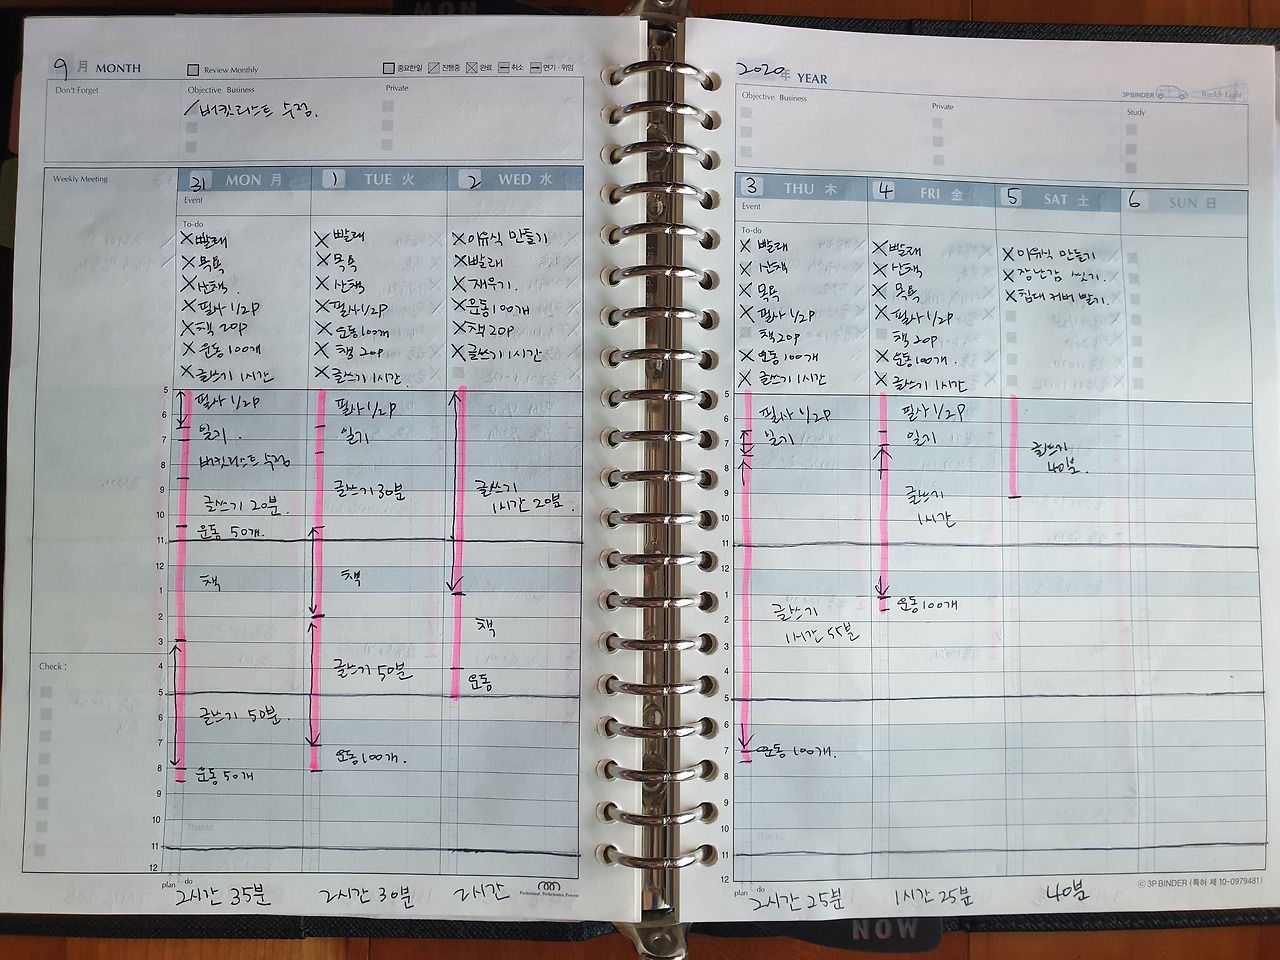 9 月 MONTH
Review Monthly
중요한일 진행중 완료 취소 연기·위임
Don't Forget
Objective Business
Private
버킷리스트 수정.
Weekly Meeting
31 MON 月
1 TUE 火
2 WED 水
Event
To-do
빨래
목욕
산책
필사 1/2P
책 20P
운동 100개
글쓰기 1시간
빨래
목욕
산책
필사 1/2P
운동 100개
책 20P
글쓰기 1시간
이유식 만들기
빨래
재우기.
운동 100개
책 20P
글쓰기 1시간
5
6
7
8
9
10
11
12
1
2
3
4
5
6
7
8
9
10
11
12
필사 1/2P
일기.
버킷리스트 수정
글쓰기 20분.
운동 50개.
책
글쓰기 50분.
운동 50개
필사 1/2P
일기
글쓰기 30분
책
글쓰기 50분
운동 100개.
글쓰기
1시간 20분.
책
운동
Check :
Thanks
plan do
2시간 35분
2시간 30분
2시간
Professional, Performance, Process
2020 年 YEAR
3P BINDER Weekly Light
Objective Business
Private
Study
3 THU 木
4 FRI 金
5 SAT 土
6 SUN 日
Event
To-do
빨래
산책
목욕
필사 1/2P
책 20P
운동 100개
글쓰기 1시간
빨래
산책
목욕
필사 1/2P
책 20P
운동 100개.
글쓰기 1시간
이유식 만들기
장난감 씻기.
침대 커버 빨기.
5
6
7
8
9
10
11
12
1
2
3
4
5
6
7
8
9
10
11
12
필사 1/2P
일기
글쓰기
1시간 55분
운동 100개.
필사 1/2P
일기
글쓰기
1시간
운동 100개
글쓰기
40분.
Thanks
plan do
2시간 25분
1시간 25분
40분
© 3P BINDER (특허 제 10-0979481)
NOW
NOW